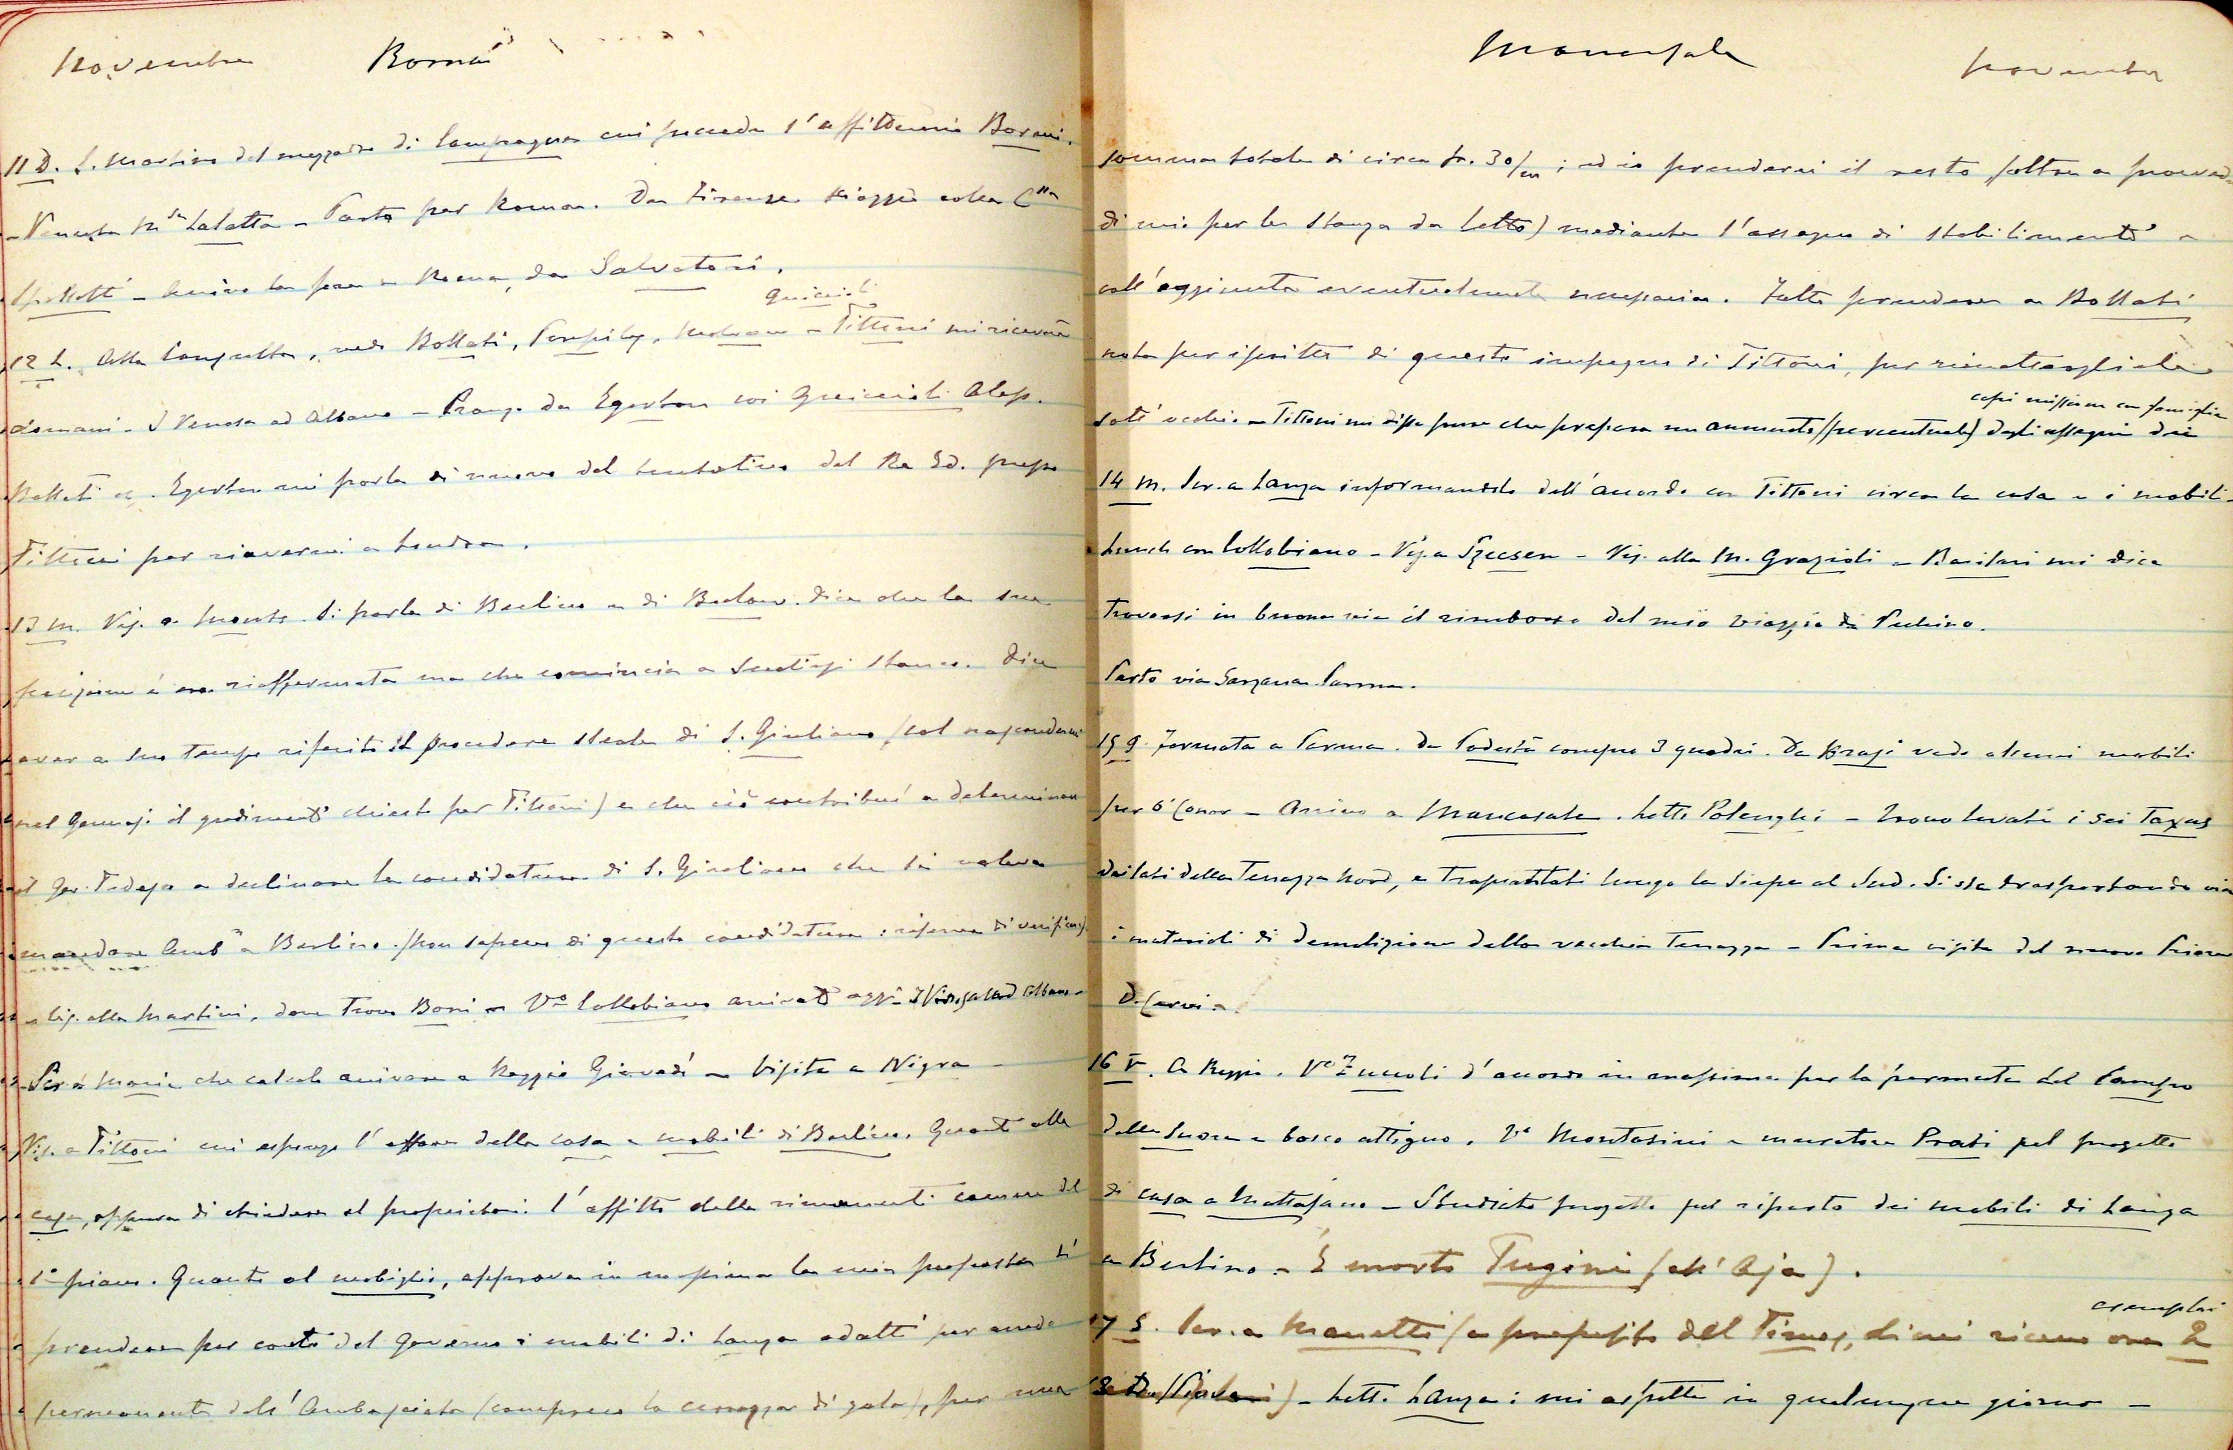 Novembre Roma
11 D. S. Martino del mezzadro di Campagna cui succede l'affittuario Borani.
- Venuta Mse Lalatta - Parto per Roma. Da Firenze viaggio colla Css
Spalletti - Arrivo la sera a Roma, da Salvatori.
Guiccioli
12 L. Alla Consulta, vedo Bollati, Pompilj, - Tittoni mi riceverà
domani. I Venosa ad Albano - Pranzo da Egerton coi Guiccioli Aless.
Bollati ec. Egerton mi parla di nuovo del tentativo del Re Ed. presso
Tittoni per riavermi a Londra.
13 M. Vis. a Monts. Si parla di Berlino e di Bulow. Dice che la sua
posizione è ora riaffermata ma che comincia a sentirsi stanco. Dice
aver a suo tempo riferito il procedere sleale di S. Giuliano (col nascondere
nel Gennajo il gradimento chiesto per Tittoni) e che ciò contribuì a determinare
il Gov. Tedesco a declinare la candidatura di S. Giuliano che si voleva
mandare Ambre a Berlino. (Non sapevo di questa candidatura: riserva di verificarsi)
- Vis. alla Martini, dove trovo Boni - Vo Collobiano arrivato oggi - I Venosa ad Albano -
- Scr. a Maria che calcolo arrivare a Reggio Giovedì - Visita a Nigra -
Vis. a Tittoni cui espongo l'affare della casa e mobili di Berlino. Quanto alla
casa, approva di chiedere al proprietario l'affitto delle rimanenti camere del
1o piano. Quanto al mobiglio, approva in massima la mia proposta di
prendere per conto del Governo i mobili di Lanza adatti per arredo
permanente dell'Ambasciata (compresa la carrozza di gala), per una
Mancasale Novembre
somma totale di circa fr. 30/m; ed io prenderei il resto (oltre a provved.
di mio per la stanza da letto) mediante l'assegno di stabilimento e
coll'aggiunta eventualmente necessaria. Fatto prendere a Bollati
nota per iscritto di questo impegno di Tittoni, per rimettergliela
capi missione con famiglia
sott'occhio. - Tittoni mi disse pure che prepara un aumento (percentuale) degli assegni dei
14 M. Scr. a Lanza informandolo dell'accordo con Tittoni circa la casa e i mobili -
Lunch con Collobiano - Vis. a Szecsen - Vis. alla M. Grazioli - Basilari mi dice
trovarsi in buona via il rimborso del mio viaggio di Pechino.
Parto via Sarzana Parma.
15 G. Fermata a Parma. Da Podestà compro 3 quadri. Da Brasi vedo alcuni mobili
per O'Conor - Arrivo a Mancasale. Letto Polenghi - Trovo levati i sei Taxus
dai lati della Terrazza Nord, e trapiantati lungo la siepe al Sud. Si sta trasportando via
i materiali di demolizione della vecchia Terrazza - Prima visita del nuovo Priore
D. Cervi -
16 V. A Reggio. Vo Zuccoli d'accordo in massima per la permuta del Campo
delle Suore e bosco attiguo. Vo Montasini e muratore Prati pel progetto
di casa a Mattajano - Studiato progetto pel riparto dei mobili di Lanza
a Berlino - È morto Tugini (all'Aja).
esemplari
17 S. Scr. a Manetti (a proposito del Times, di cui ricevo ora 2
) - Lett. Lanza: mi aspetta in qualunque giorno -